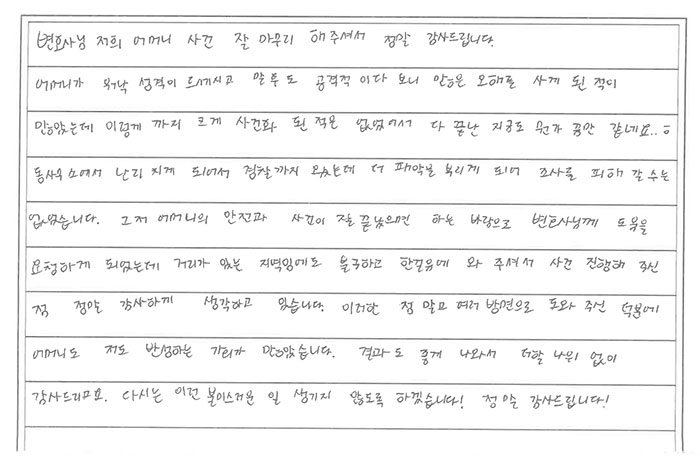 변호사님 저희 어머니 사건 잘 마무리 해주셔서 정말 감사드립니다.
어머니가 워낙 성격이 드세시고 말투도 공격적이다 보니 많은 오해를 사게 된 적이
많았는데 이렇게 까지 크게 사건화 된 적은 없었어서 다 끝난 지금도 뭔가 꿈만 같네요..ㅎ
동사무소에서 난리 치게 되어서 경찰까지 왔는데 더 패악을 부리게 되어 조사를 피해 갈 수는
없었습니다. 그저 어머니의 안전과 사건이 잘 끝났으면 하는 바람으로 변호사님께 도움을
요청하게 되었는데 거리가 있는 지역임에도 불구하고 한걸음에 와 주셔서 사건 진행해 주신
점 정말 감사하게 생각하고 있습니다. 이러한 점 말고 여러 방면으로 도와 주신 덕분에
어머니도 저도 반성하는 기회가 많았습니다. 결과도 좋게 나와서 더할 나위 없이
감사드리고요. 다시는 이런 불미스러운 일 생기지 않도록 하겠습니다! 정말 감사드립니다!